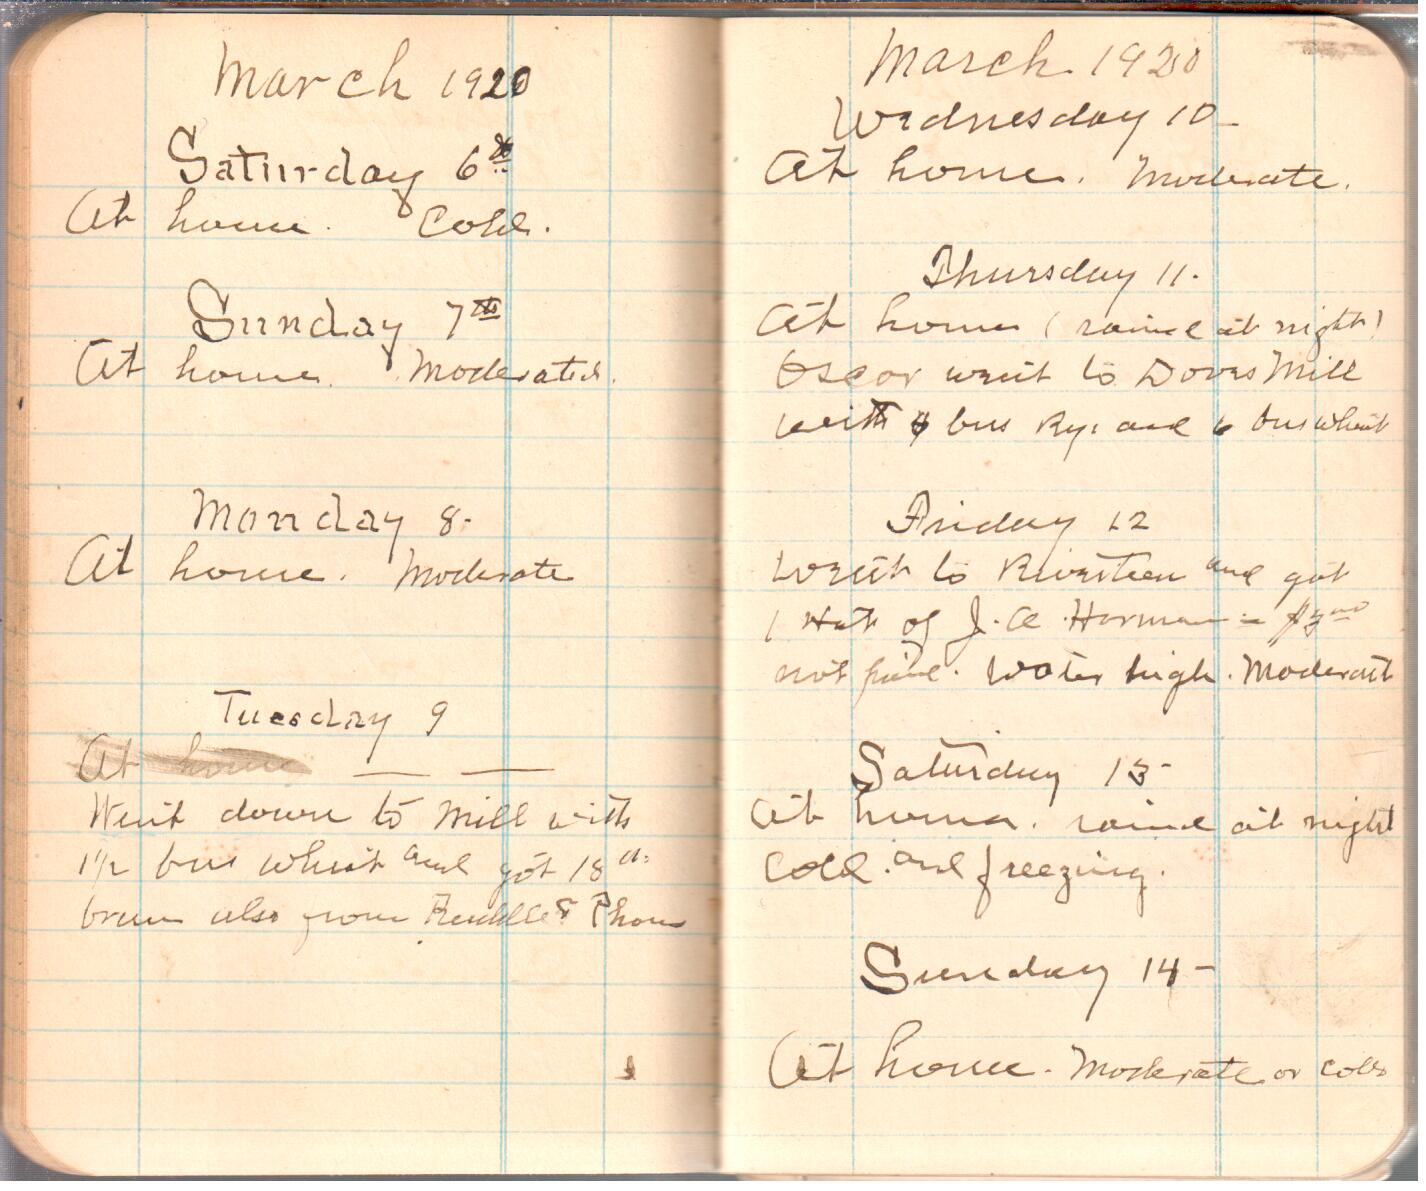 March 1920
Saturday 6th
At home. Cold.
Sunday 7th
At home. Moderated.
Monday 8-
At home. Moderate
Tuesday 9
At home — —
Went down to mill with
1 1/2 bus wheat and got 18 lbs
bran also from Phone
March 1920
Wednesday 10-
At home. Moderate.
Thursday 11.
At home (raind at night)
Oscar went to Doves Mill
with bus Rye and 6 bus wheat
Friday 12
Went to Riverton and got
1 Hat of J. A. Horman
not paid. Water high. Moderate
Saturday 13-
At home. raind at night
Cold. and freezing.
Sunday 14-
At home. Moderate or cold